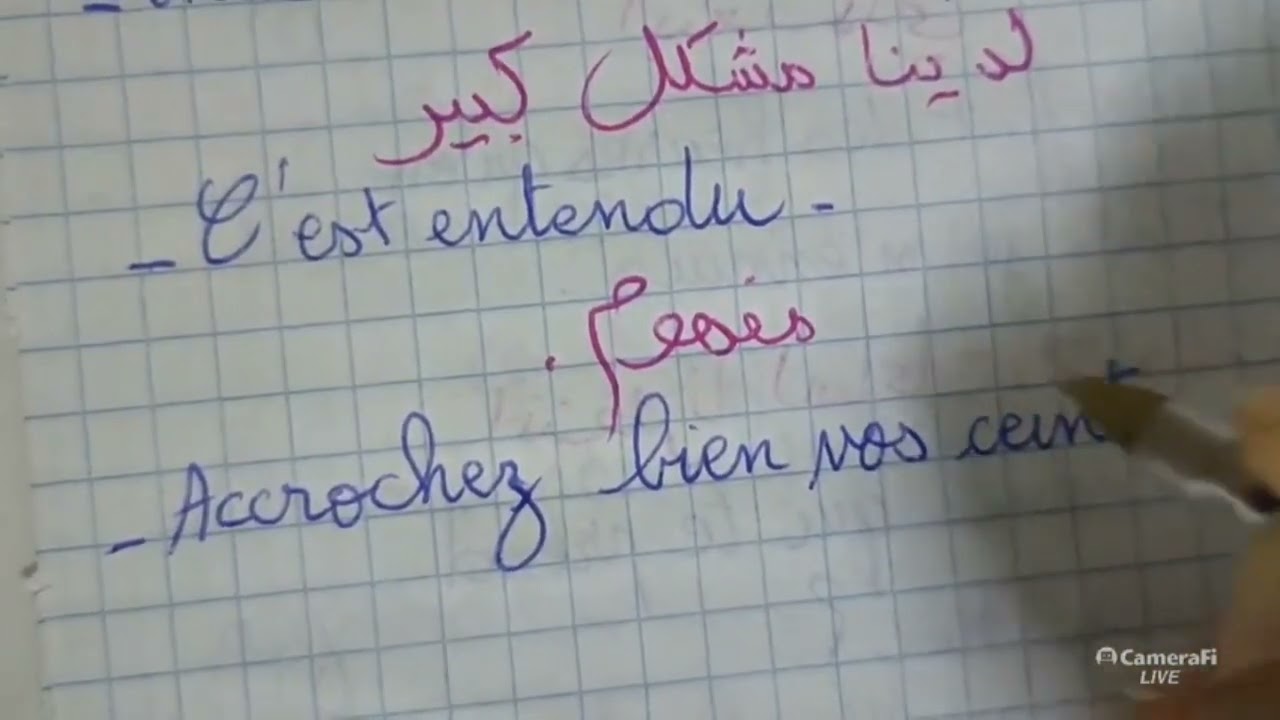 لدينا مشكل كبير
- C'est entendu -
مفهوم .
- Accrochez bien vos ceint
CameraFi
LIVE